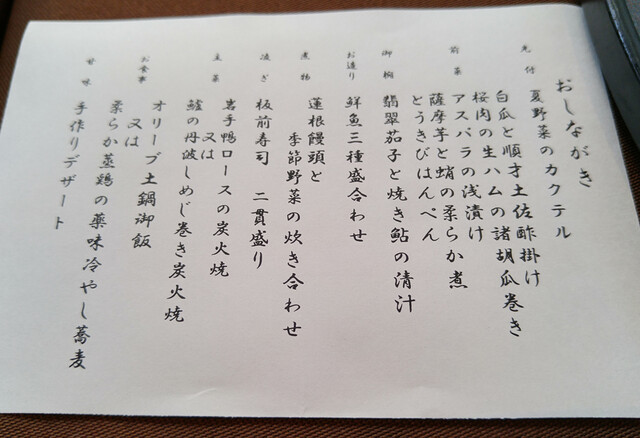 おしながき
先付
夏野菜のカクテル
白瓜と順才土佐酢掛け
前菜
桜肉の生ハムの諸胡瓜巻き
アスパラの浅漬け
薩摩芋と蛸の柔らか煮
とうきびはんぺん
御椀
翡翠茄子と焼き鮎の清汁
お造り
鮮魚三種盛合わせ
煮物
蓮根饅頭と
季節野菜の炊き合わせ
凌ぎ
板前寿司 二貫盛り
主菜
岩手鴨ロースの炭火焼
又は
鱧の丹波しめじ巻き炭火焼
お食事
オリーブ土鍋御飯
又は
柔らか蒸鶏の薬味冷やし蕎麦
甘味
手作りデザート